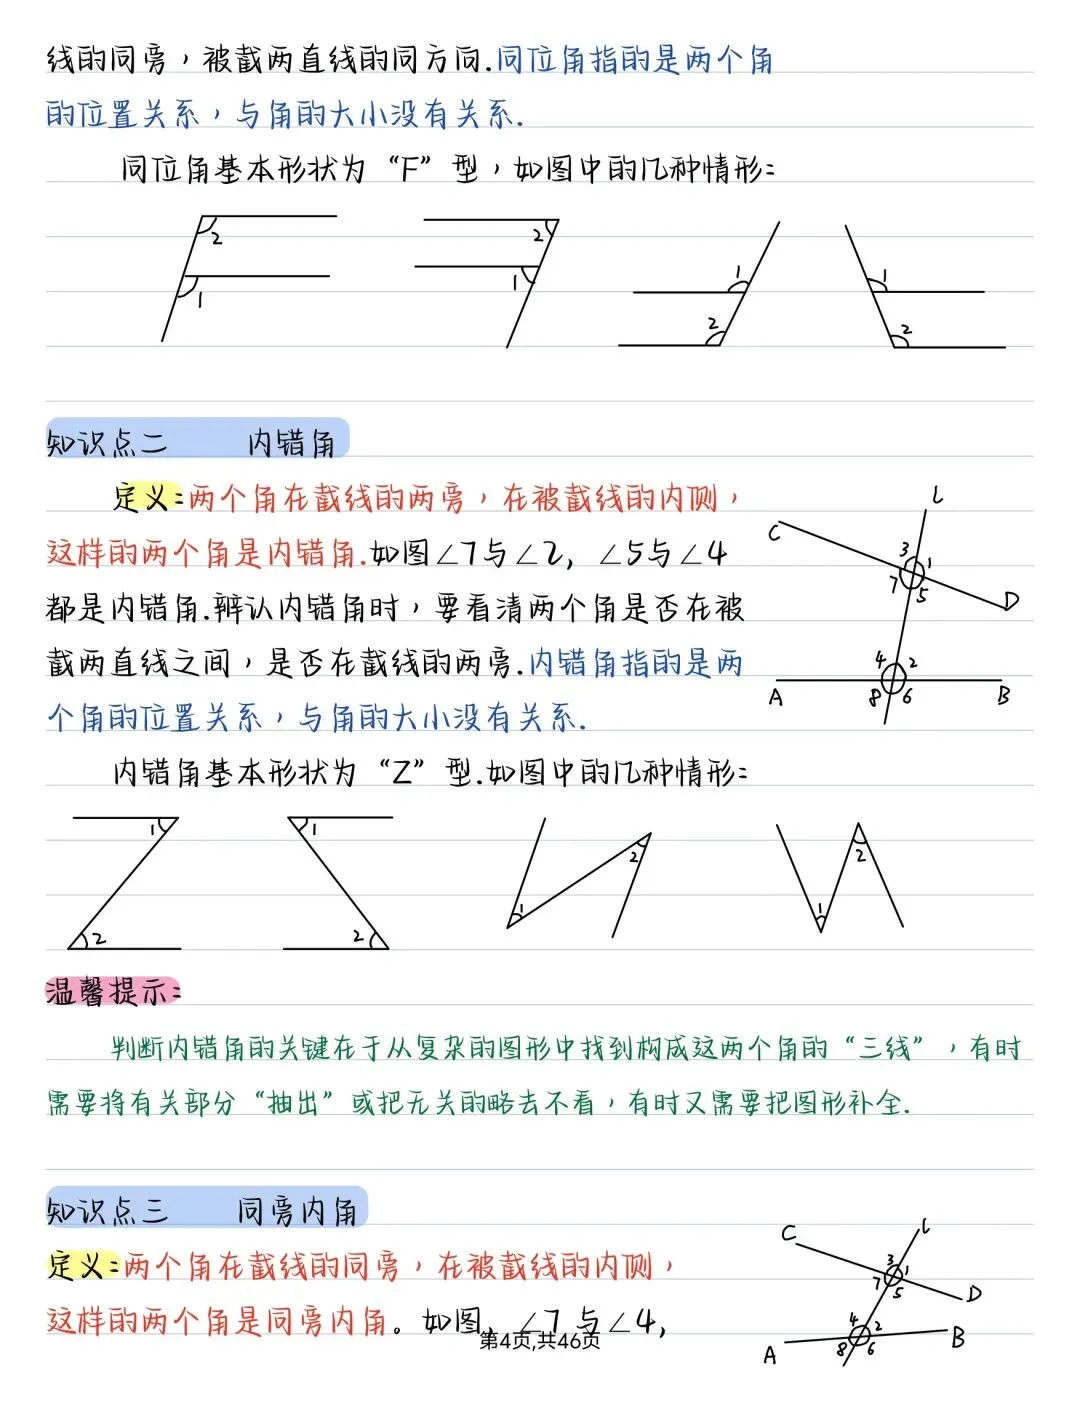 线的同旁，被截两直线的同方向.同位角指的是两个角
的位置关系，与角的大小没有关系.
同位角基本形状为“F”型，如图中的几种情形:
2
1
2
1
1
2
1
2
知识点二 内错角
定义:两个角在截线的两旁，在被截线的内侧，
这样的两个角是内错角.如图∠7与∠2，∠5与∠4
都是内错角.辨认内错角时，要看清两个角是否在被
截两直线之间，是否在截线的两旁.内错角指的是两
个角的位置关系，与角的大小没有关系.
L
C
3 1
7 5
D
4 2
A 8 6 B
内错角基本形状为“Z”型.如图中的几种情形:
1
2
1
2
2
1
2
1
温馨提示:
判断内错角的关键在于从复杂的图形中找到构成这两个角的“三线”，有时
需要将有关部分“抽出”或把无关的略去不看，有时又需要把图形补全.
知识点三 同旁内角
定义:两个角在截线的同旁，在被截线的内侧，
这样的两个角是同旁内角。如图，∠7与∠4，
C L
3 1
7 5 D
4 2 B
A 8 6
第4页,共46页